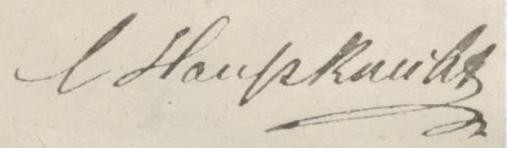 C Haupknecht